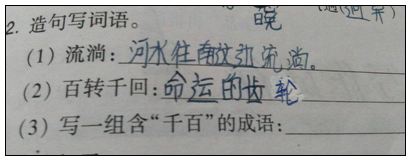 晓
2. 造句写词语。
(1) 流淌：河水往南流淌。
(2) 百转千回：命运的齿轮
(3) 写一组含“千百”的成语：